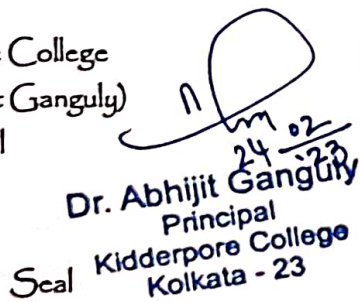 College
Ganguly)
24 02 23
Dr. Abhijit Ganguly
Principal
Kidderpore College
Kolkata - 23
Seal